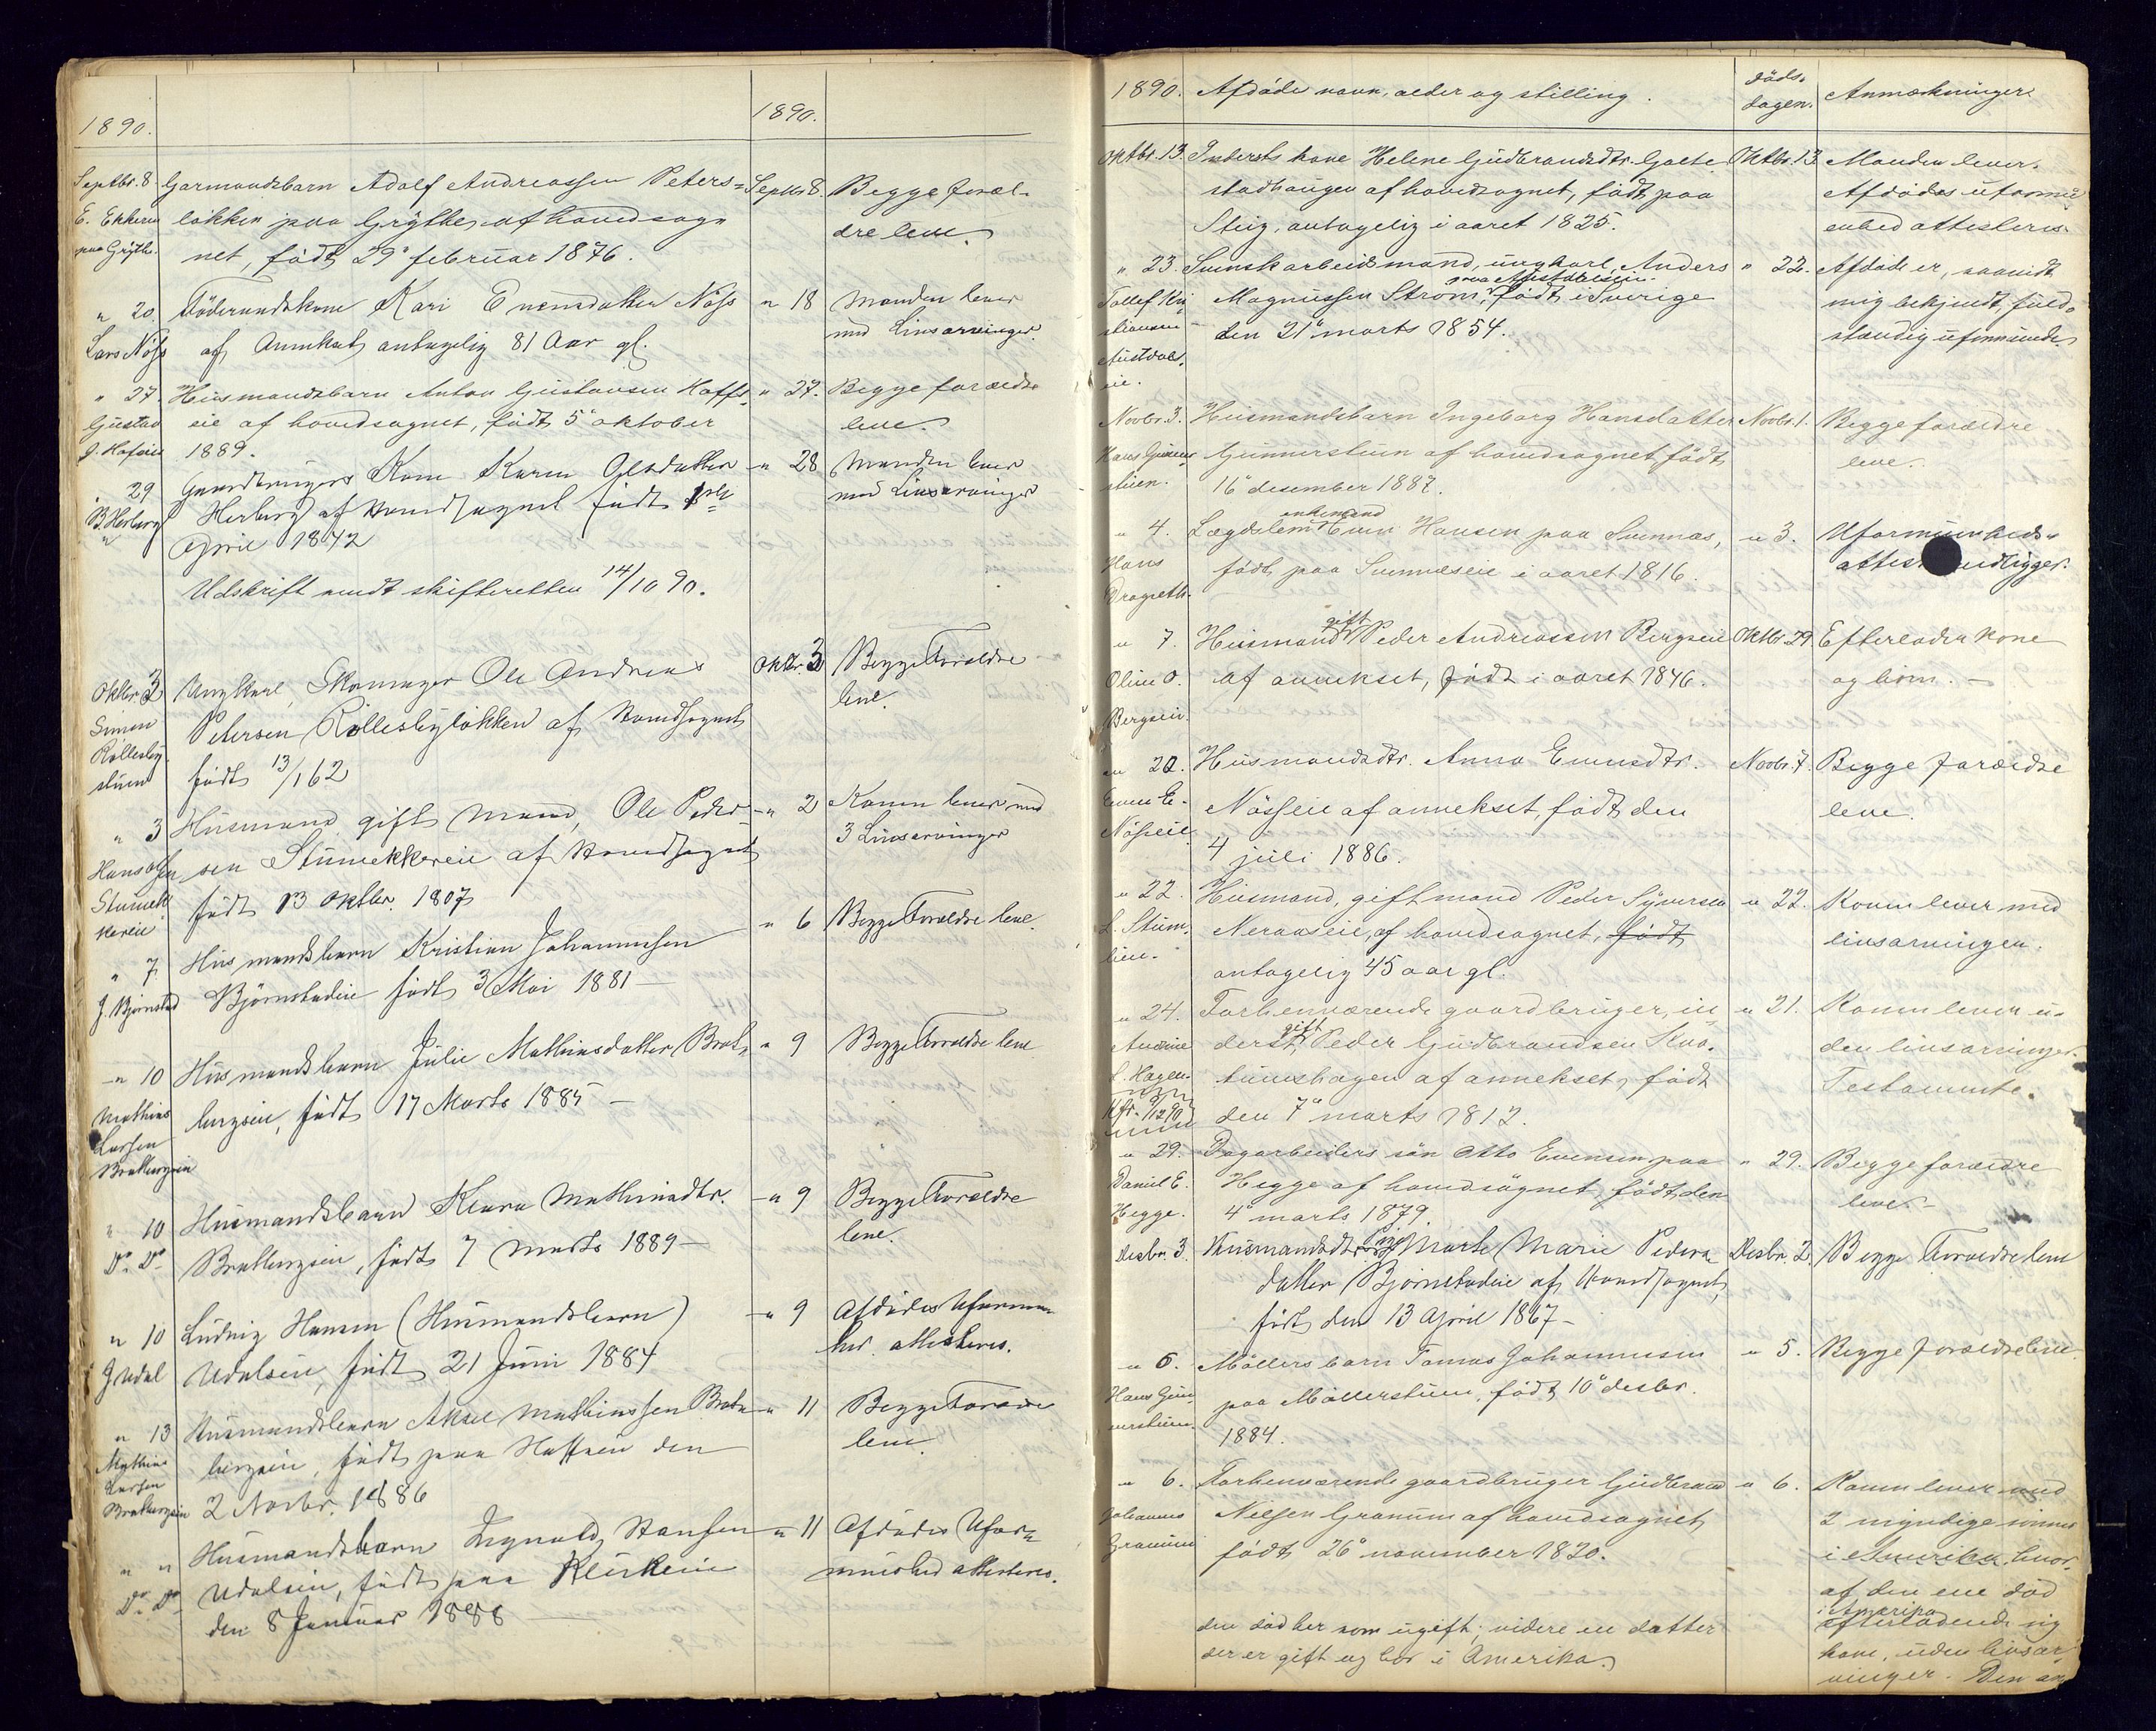 1890.
1890.
Septbr. 8. Garmandsbarn Adolf Andreassen Peters= Septbr 8. Begge foræl-
E. Ekkern løkken paa Grÿthe, af hovedsog- dre leve.
paa Grÿthe. net, født 29 februar 1876.
" 20 Föderaadskone Kari Evensdatter Nöss " 18 Manden lever
Lars Nöss af Annekset antagelig 81 Aar gl. med Livsarvinger.
" 27. Husmandsbarn Anton Gustavsen Haffs- " 27. Begge forældre
Gustav eie af hovedsognet, født 5 oktober leve.
J. Hafseie 1889.
" 29 Gaardbrugers Kone Karen Olsdatter " 28 Manden lever
B. Herberg Herberg af Hovedsognet født
April 1842 med Livsarvinger
Udskrift sendt skifteretten 14/10 90.
Oktbr. 3 Ungkarl, Skomager Ole Andreas Oktbr. 3 Begge Forældre
Simen Petersen Rolleslyløkken af Hovedsognet leve.
Röllesby
stuen født 13/1 62
" 3 Husmand gift Mand, Ole Peder- " 2 Konen lever med
Hans Olsen sen Stuvekkereie af Hovedsognet 3 Livsarvinger
Stuvek
kereie født 13 Oktbr. 1807
" 7. Husmandsbarn Kristian Johannessen " 6 Begge Forældre leve.
J. Bjørnstad Bjørnstadeie født 3 Mai 1881 —
" 10 Husmandsbarn Julie Mathiasdatter Brat- " 9 Begge Forældre leve
Mathias bergseie, født 17 Marts 1885 —
Larsen
Bratbergseie
" 10 Husmandsbarn Klara Mathiasdtr. " 9 Begge Forældre
Do. Do. Bratbergseie, født 7 Marts 1889 — leve.
" 10 Ludvig Hansen (Husmandsbarn) " 9 Afdødes Uformuen-
J Udal Udalseie, født 21 Juni 1884 hed attesteres.
" 13 Husmandsbarn Aksel Mathiassen Brat- " 11 Begge Forældre
Mathias bergseie, født paa Haffseie den leve.
Larsen
Bratbergseie 2 Novbr. 1886
" " Husmandsbarn Ingvald Hansen " 11 Afdødes Ufor-
Do. Do. Udalseie, født paa muenhed attesteres.
den 8 Januar 1888 —
1890. Afdødes navn, alder og stilling. døds- dagen. Anmærkninger.
Oktbr. 13. Indersts kone Helene Gudbrandsdtr. Gaste- Oktbr. 13 Manden lever.
stadhaugen af hovedsognet, født paa Afdødes uformu-
Steig, antagelig i aaret 1825. enhed attesteres
" 23. Svensk arbeidsmand, ungkarl, Anders " 22. Afdøde er, saavidt
paa Austdalseie
Tollef Kri- Magnussen Strøm, født i Sverige mig bekjendt, fuld-
stiansen den 21 marts 1854. stændig uformuende
Austdals-
eie.
Novbr. 3. Husmandsbarn Ingeborg Hansdatter Novbr. 1. Begge forældre
Hans Gunner- Gunnerstuen af hovedsognet født leve.
stuen. 16 desember 1887.
enkemand
" 4. Lægdslem Even Hansen paa Svennæs, " 3. Uformuenheds-
Hans født paa Svennæseie i aaret 1816. attest vedligger.
Dragseth.
gift
" 7. Husmand Peder Andreassen Bergseie Oktbr. 29. Efterlader kone
Oline O. af annekset, født i aaret 1846. og børn. —
Bergseie.
" 20. Husmandsdtr. Anna Evensdtr. Novbr. 7. Begge forældre
Even E. Nösseie af annekset, født den leve.
Nösseie. 4 juli 1886.
" 22. Husmand, gift mand Peder Syversen " 22. Konen lever med
L. Stum- Neraaseie, af hovedsognet, født livsarvinger.
lien. antagelig 45 aar gl.
" 24. Forhenværende gaardbruger, in- " 21. Konen lever u-
gift
Andrine derst, Peder Gudbrandsen Kna- den livsarvinger.
L. Hagen. tunshagen af annekset, født Testamente.
den 7 marts 1812.
" 29. Dagarbeiders søn Otto Evensen paa " 29. Begge forældre
Daniel E. Hegge af hovedsognet, født den leve. —
Hegge. 4 marts 1879.
Desbr. 3. Husmandsdtr. Pige Marte Marie Peders- Desbr. 2. Begge Forældre leve
datter Bjørnstadeie af Hovedsognet,
født den 13 April 1867 —
" 6. Møllers barn Tomas Johannesen " 5. Begge forældre leve.
Hans Gun- paa Møllerstuen, født 10 desbr.
nerstuen. 1884.
" 6. Forhenværende gaardbruger Gudbrand " 6. Konen lever med
Johannes Nielsen Granum af hovedsognet, 2 myndige sønner
Granum født 26 november 1820. i Amerika, hvor-
af den ene død
i Amerika
efterladende sig
kone, uden livsar-
vinger. Den an
den død her som ugift; videre en datter
der er gift og bor i Amerika.